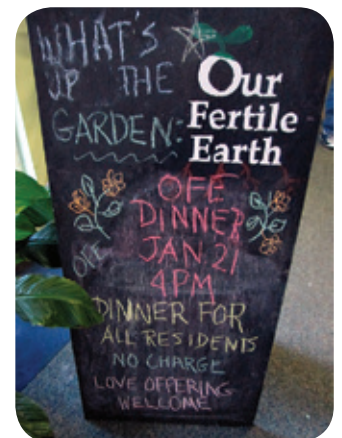 WHAT'S
UP THE
GARDEN:
Our
Fertile
Earth
OFE
DINNER
JAN 21
4PM
OFE
DINNER FOR
ALL RESIDENTS
NO CHARGE
LOVE OFFERING
WELCOME